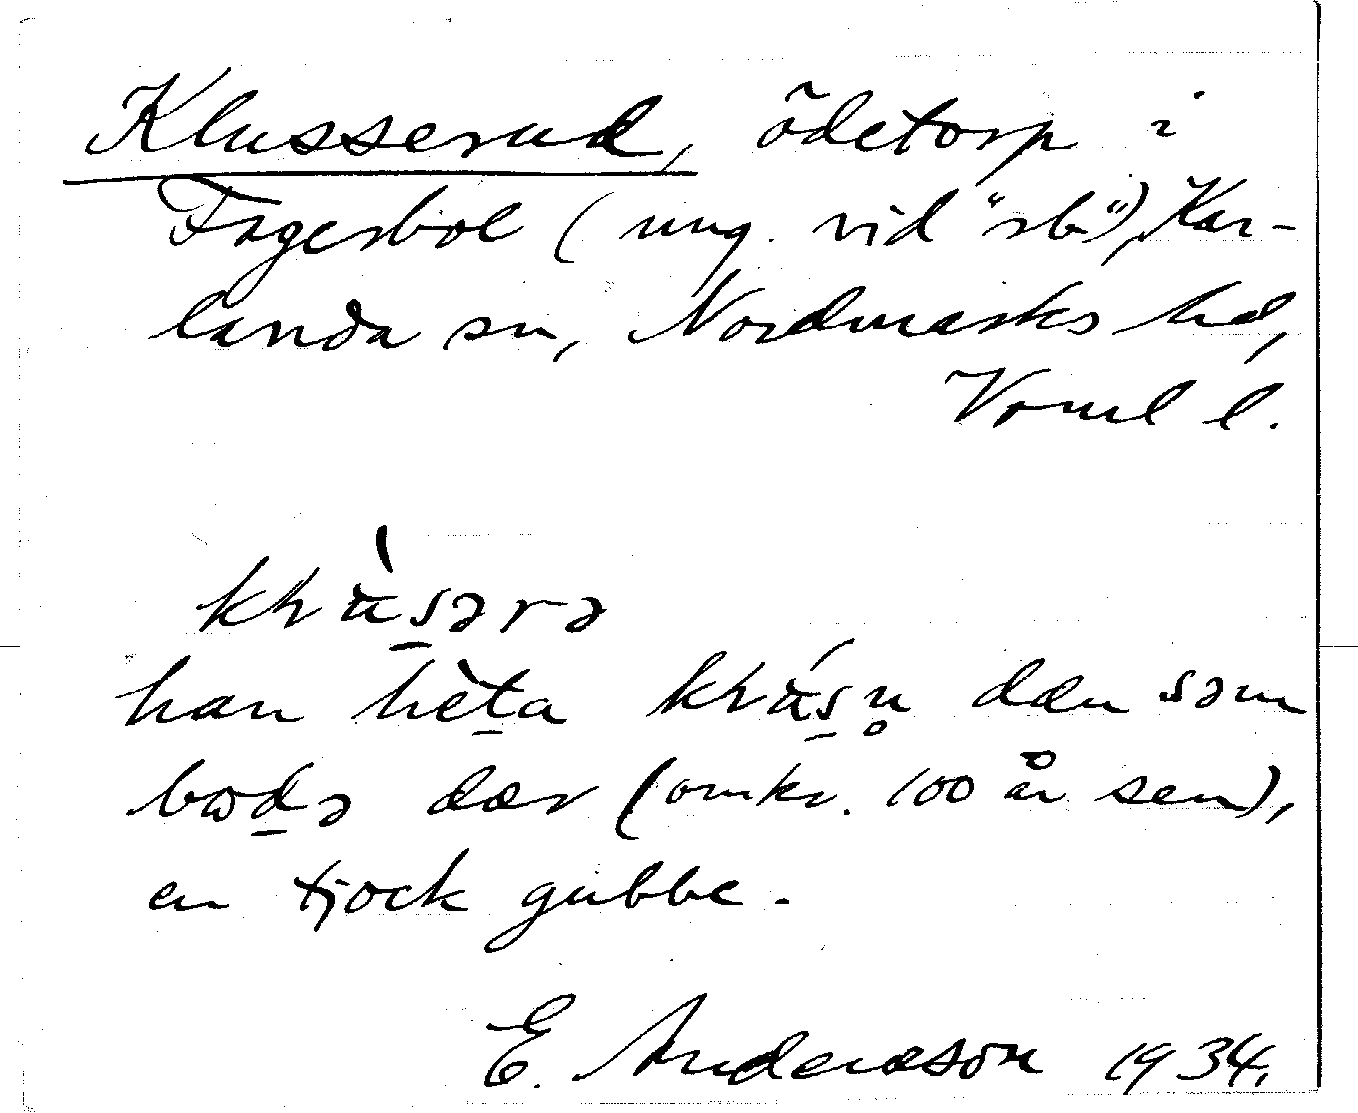 Klusserud, ödetorp i
Fagerbol (ung. vid "rb"), Kar-
landa sn, Nordmarks hd,
Vrml l.
han hèta dæn səm
bodə dær (omkr. 100 år sen),
en tjock gubbe.
E. Andersson 1934.